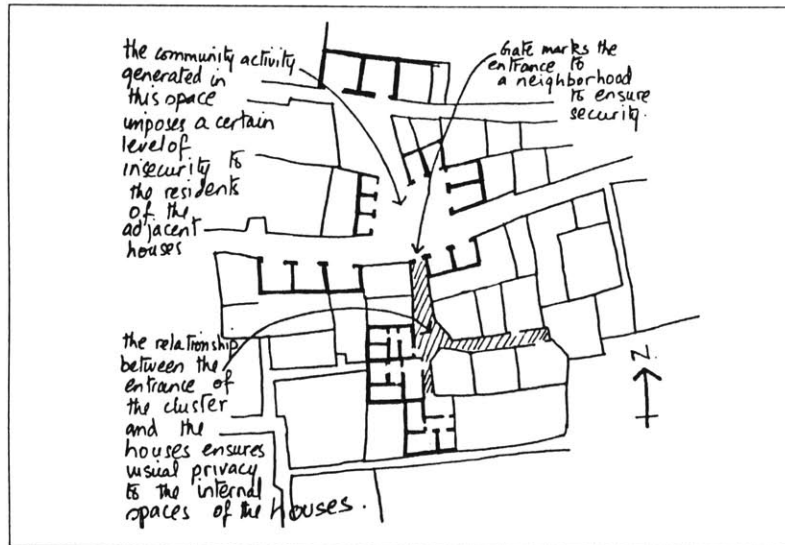 the community activity
generated in
this space
imposes a certain
level of
insecurity to
the residents
of the
adjacent
houses
Gate marks the
entrance to
a neighborhood
to ensure
security.
the relationship
between the
entrance of
the cluster
and the
houses ensures
visual privacy
to the internal
spaces of the houses.
N.